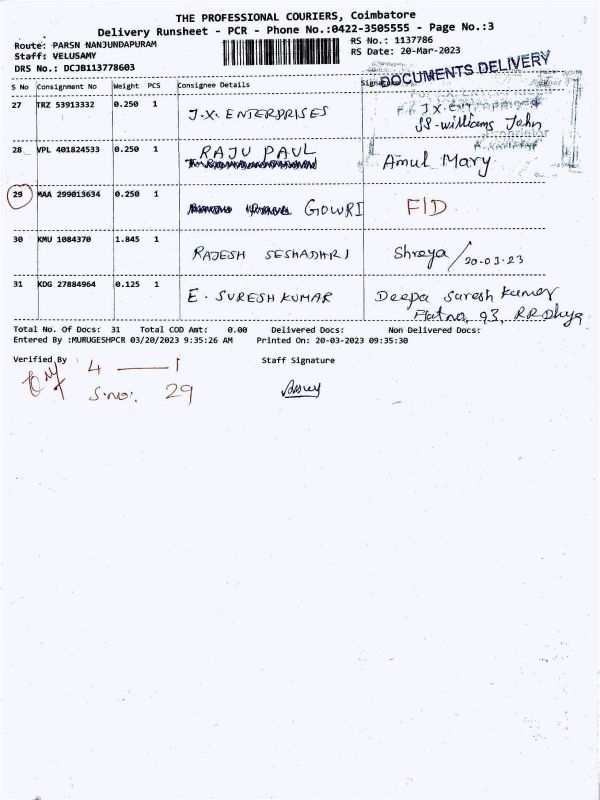 THE PROFESSIONAL COURIERS, Coimbatore
Delivery Runsheet - PCR - Phone No.:0422-3505555 - Page No.:3
Route: PARSN NANJUNDAPURAM
Staff: VELUSAMY
DRS No.: DCJB113778603
RS No.: 1137786
RS Date: 20-Mar-2023
DOCUMENTS DELIVERY
S No Consignment No Weight PCS Consignee Details Signature
27 TRZ 53913332 0.250 1 J.X. ENTERPRISES J X. Enterprises
SS-williams John
Proprietor
28 VPL 401824533 0.250 1 RAJU PAUL Amul Mary
29 MAA 299013634 0.250 1 GOWRI F/D
30 KMU 1084370 1.845 1 RAJESH SESHADHRI Shreya/20-03-23
31 KDG 27884964 0.125 1 E. SURESH KUMAR Deepa Suresh Kumar
Flat no, 93,
Total No. Of Docs: 31 Total COD Amt: 0.00 Delivered Docs: Non Delivered Docs:
Entered By :MURUGESHPCR 03/20/2023 9:35:26 AM Printed On: 20-03-2023 09:35:30
Verified By Staff Signature
4 — 1
S.no: 29